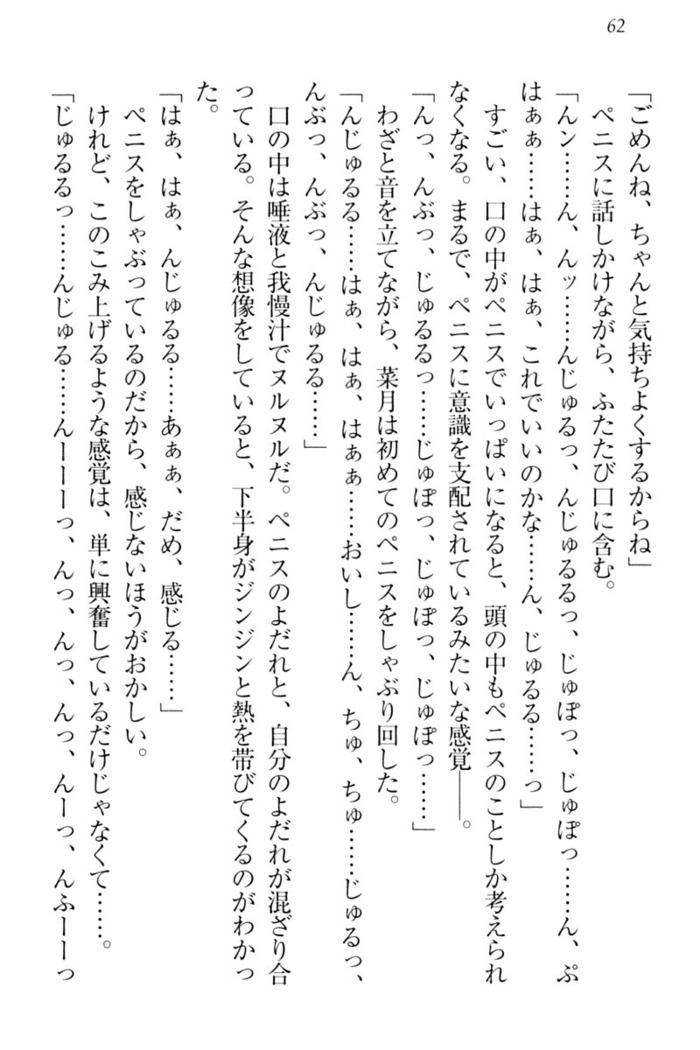 62
「ごめんね、ちゃんと気持ちよくするからね」
ペニスに話しかけながら、ふたたび口に含む。
「んン……ん、んッ……んじゅるっ、んじゅるるっ、じゅぽっ、じゅぽっ……ん、ぷ
はぁぁ……はぁ、はぁ、これでいいのかな……ん、じゅるる……っ」
すごい、口の中がペニスでいっぱいになると、頭の中もペニスのことしか考えられ
なくなる。まるで、ペニスに意識を支配されているみたいな感覚――。
「んっ、んぶっ、じゅるるっ……じゅぽっ、じゅぽっ、じゅぽっ……」
わざと音を立てながら、菜月は初めてのペニスをしゃぶり回した。
「んじゅるる……はぁ、はぁ、はぁぁ……おいし……ん、ちゅ、ちゅ……じゅるっ、
んぶっ、んぶっ、んじゅるる……」
口の中は唾液と我慢汁でヌルヌルだ。ペニスのよだれと、自分のよだれが混ざり合
っている。そんな想像をしていると、下半身がジンジンと熱を帯びてくるのがわかっ
た。
「はぁ、はぁ、んじゅるる……あぁぁ、だめ、感じる……」
ペニスをしゃぶっているのだから、感じないほうがおかしい。
けれど、このこみ上げるような感覚は、単に興奮しているだけじゃなくて……。
「じゅるるっ……んじゅる……んーーーっ、んっ、んっ、んっ、んーっ、んふーーっ